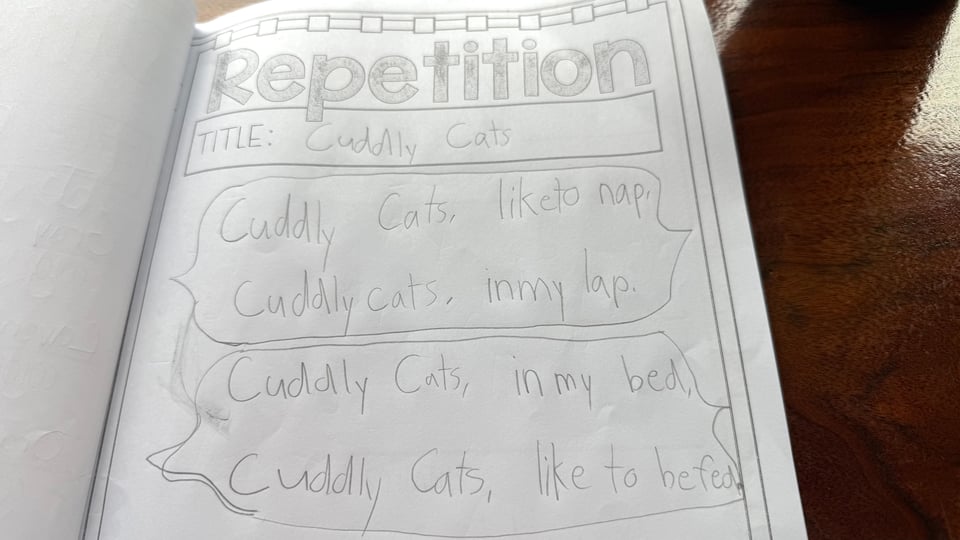 Repetition
TITLE: Cuddly Cats
Cuddly Cats, liketo nap,
Cuddly cats, inmy lap.
Cuddly Cats, in my bed,
Cuddly Cats, like to befed.